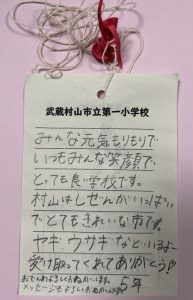 武蔵村山市立第一小学校
みんな元気もりもりで
いつもみんな笑顔で、
とっても良い学校です。
村山はしぜんがいっぱい
でとてもきれいな市です。
ヤギ・ウサギなどいるよー
受け取ってくれてありがとう!!
おでんわよろしくおねがいします。
メッセージもよろしくおねがいします。
5年